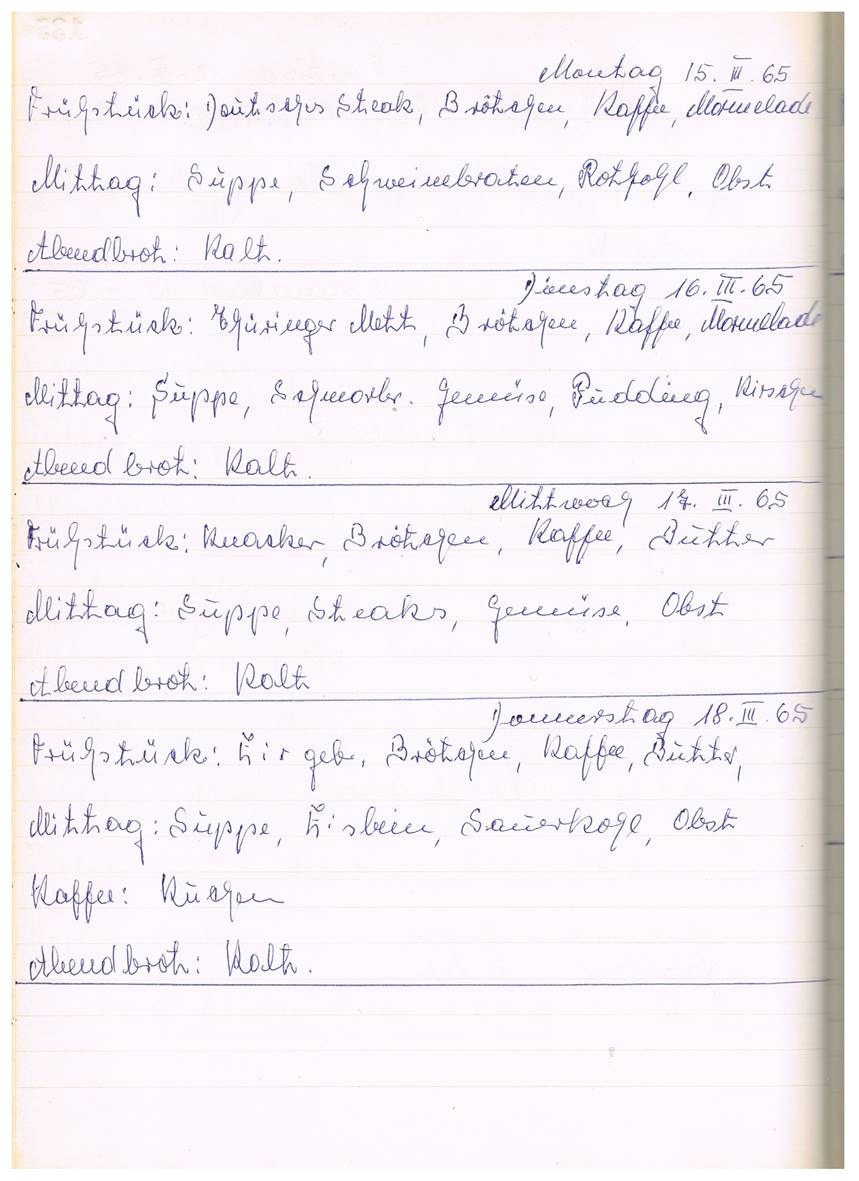 Montag 15. III. 65
Frühstück: Deutsches Steak, Brötchen, Kaffee, Marmelade
Mittag: Suppe, Schweinebraten, Rotkohl, Obst
Abendbrot: Kalt.
Dienstag 16. III. 65
Frühstück: Thüringer Mett, Brötchen, Kaffee, Marmelade
Mittag: Suppe, Schmorbr. Gemüse, Pudding, Kirschen
Abendbrot: Kalt.
Mittwoch 17. III. 65
Frühstück: Knacker, Brötchen, Kaffee, Butter
Mittag: Suppe, Steaks, Gemüse, Obst
Abendbrot: Kalt
Donnerstag 18. III. 65
Frühstück: Eier gebr, Brötchen, Kaffee, Butter,
Mittag: Suppe, Eisbein, Sauerkohl, Obst
Kaffee: Kuchen
Abendbrot: Kalt.